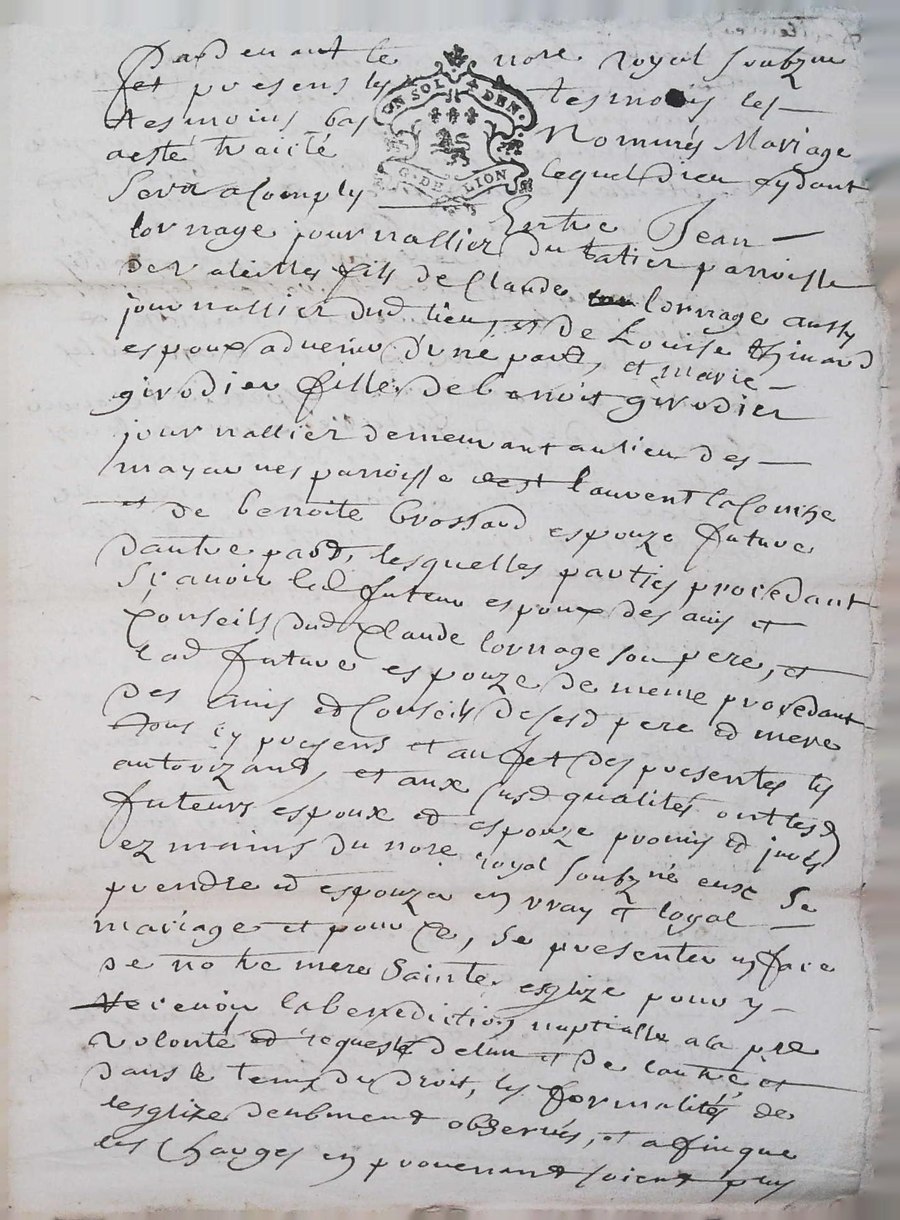 Pardevant le nore royal soubzne
et presens les tesmoins les
tesmoins bas Nommés Mariage
a esté traicté lequel Dieu aydant
Sera acomply Entre Jean
lornage journallier du parroisse
de fils de Claude lornage aussy
journallier dud lieu, et de Louise thinard
espoux advenir d'une part, et marie
girodier fille de benoist girodier
journallier demeurant au lieu des
mayavnes parroisse st laurent la Conche
et de benoite brossard espouze future
dautre part, lesquelles parties procedant
Sçavoir led futeur espoux des avis et
Conseils dud Claude lornage son pere, et
lad future espouze de meme procedant
des avis et Conseils de sesd pere et mere
tous cy presens et au fet des presentes les
autorizant, et aux susd qualités ont lesd
futeurs espoux et espouze promis et jurés
ez mains du nore royal soubzné eux Se
prendre et espouzer en vray et loyal
mariage et pour ce, se presenter en face
de notre mere Sainte esglize pour y
recevoir la benediction nuptialle a la pre
volonté et requeste de lun et de lautre et
dans le temz du droit, les formalités de
lesglize deubment observés, et affin que
les Charges en provenant soient plus
ON SOL 4 DEN.
G. DE LION